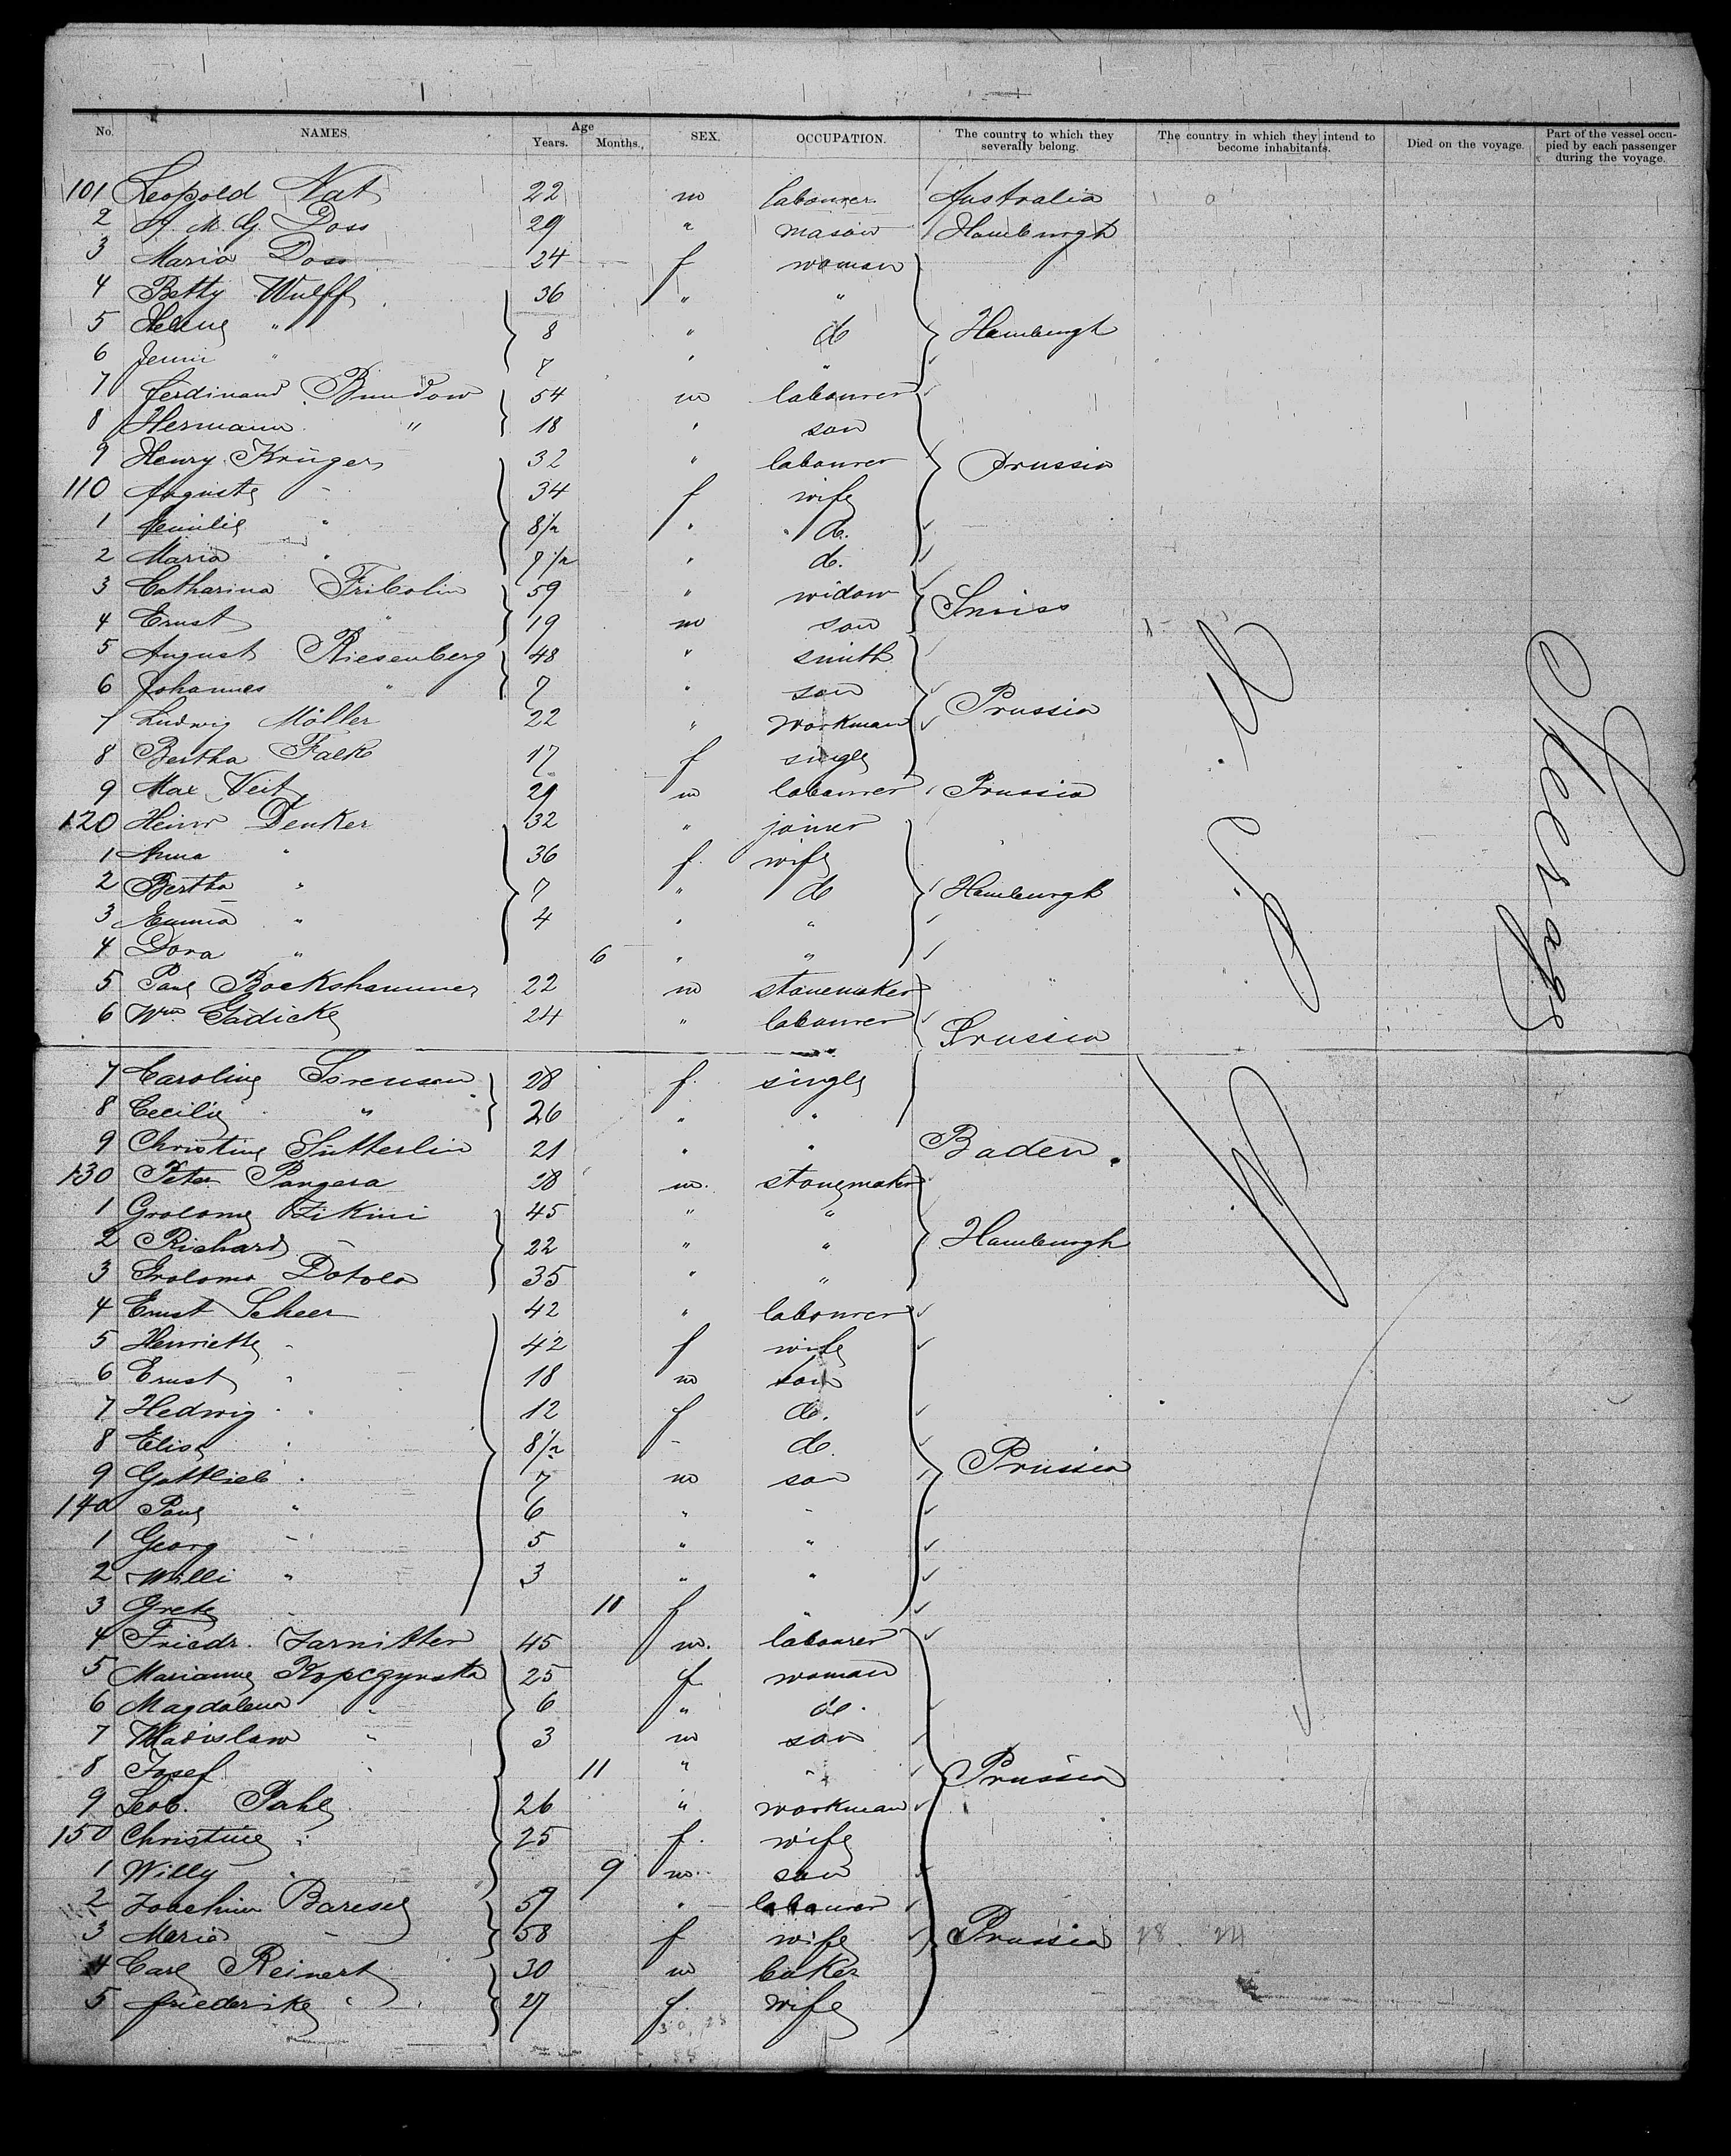 No. NAMES. Age Years. Months. SEX. OCCUPATION. The country to which they severally belong. The country in which they intend to become inhabitants. Died on the voyage. Part of the vessel occupied by each passenger during the voyage.
101 Leopold Nat 22 m labourer Australia
2 A. M. G. Doss 29 " mason Hamburgh
3 Maria Doss 24 f woman
4 Betty Wulff 36 " "
5 Helene " 8 " do Hamburgh
6 Jenni " 7 " "
7 Ferdinand 54 m labourer
8 Hermann " 18 " son
9 Henry Krüger 32 " labourer Prussia
110 Auguste " 34 f wife
1 Emilie " 8 1/2 " do.
2 Maria " 7 1/2 " do.
3 Catharina Fribolin 59 " widow Swiss
4 Ernst " 19 m son
5 August Riesenberg 48 " smith
6 Johannes " 7 " son Prussia
7 Ludwig Möller 22 " workman
8 Bertha Falk 17 f single
9 Max Veit 29 m labourer Prussia
120 Heinr Denker 32 " joiner
1 Anna " 36 f. wife
2 Bertha " 7 " do Hamburgh
3 Emma " 4 " "
4 Dora " 6 " "
5 Paul Bockshammer 22 m stonemaker
6 Wm. Gädicke 24 " labourer Prussia
7 Caroline Sorensen 28 f. single
8 Cecilie " 26 " "
9 Christine Sütterlin 21 " " Baden.
130 Peter Pangera 28 m. stonemaker
1 Grolome Zikini 45 " "
2 Richard " 22 " " Hamburgh
3 Grolomo Dotolo 35 " "
4 Ernst Scheer 42 " labourer
5 Henriette " 42 f wife
6 Ernst " 18 m son
7 Hedwig " 12 f do.
8 Elise " 8 1/2 - do. Prussia
9 Gottlieb " 7 m son
140 Paul " 6 " "
1 Georg " 5 " "
2 Willi " 3 " "
3 Grete 10 f "
4 Friedr. Zarnitter 45 m. labourer
5 Marianne Kopczynska 25 f. woman
6 Magdalena " 6 " do.
7 Wladislaw " 3 m son
8 Josef " 11 " " Prussia
9 Leob. Pahl 26 " workman
150 Christine " 25 f. wife
1 Willy " 9 m. son
2 Joachim Baresel 59 " labourer
3 Maria " 58 f wife Prussia
4 Carl Reinert 30 m baker
5 Friederike " 27 f. wife
U. S. A.
Steerage